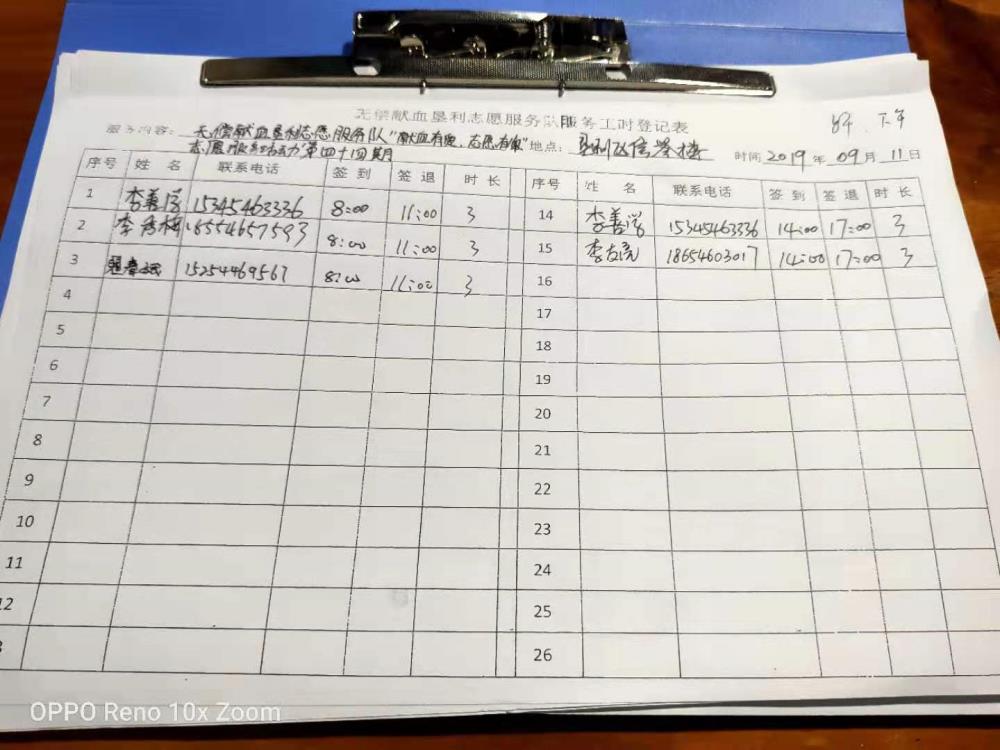 无偿献血垦利志愿服务队服务工时登记表
服务内容：无偿献血垦利志愿服务队"献血有爱，志愿有我" 地点： 时间 2019 年 09 月 11 日
志愿服务活动第四十四期 下午
序号 姓 名 联系电话 签 到 签 退 时 长 序号 姓 名 联系电话 签 到 签 退 时 长
1 李善学 15345463336 8:00 11:00 3 14 李善学 15345463336 14:00 17:00 3
2 李秀梅 18554657593 8:00 11:00 3 15 18654603017 14:00 17:00 3
3 15254469567 8:00 11:00 3 16
4 17
5 18
6 19
7 20
8 21
9 22
10 23
11 24
12 25
26
OPPO Reno 10x Zoom